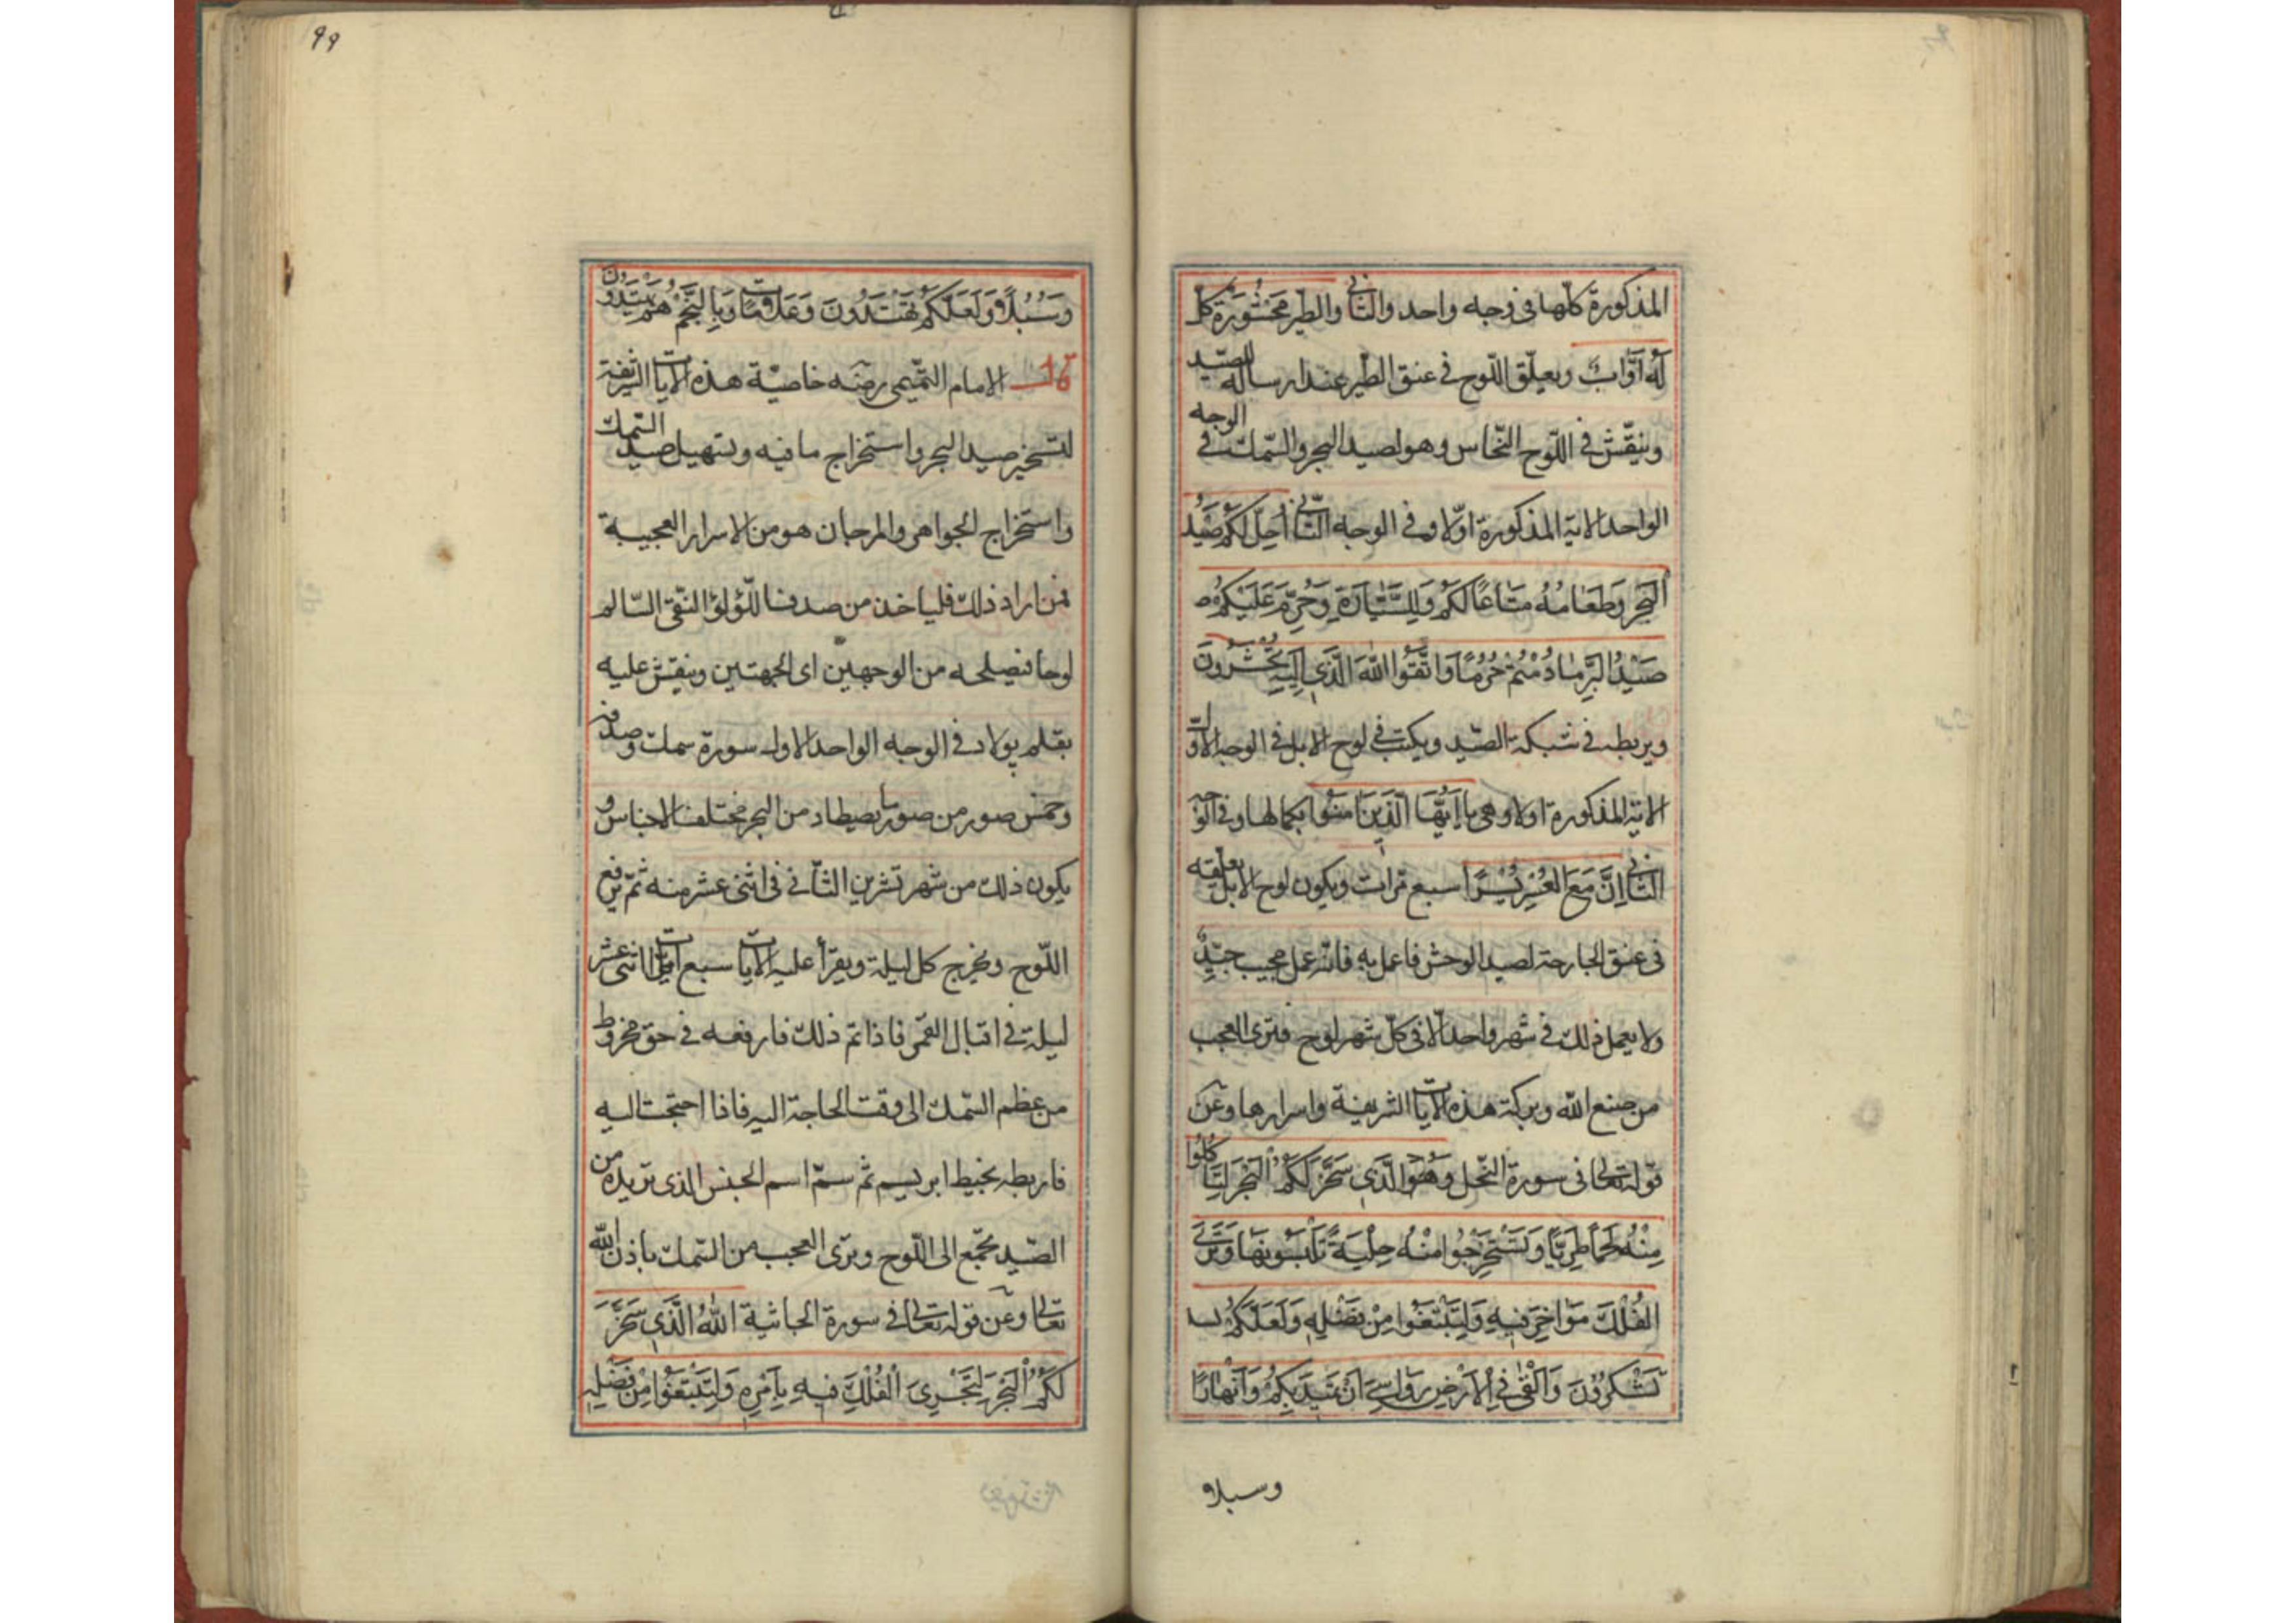 المذكورة كلّها فى وجه واحد والثّانى والطّير مَحْشُورَةً كُلٌّ
لَهُ أَوَّابٌ ويعلّق اللّوح فى عنق الطّير عند ارساله للصّيد
وينقّش فى اللّوح النّحاس وهو لصيد البحر والسّمك فى الوجه
الواحد الاية المذكورة اوّلا وفى الوجه الثّانى اُحِلَّ لَكُمْ صَيْدُ
الْبَحْرِ وَطَعَامُهُ مَتَاعًا لَكُمْ وَلِلسَّيَّارَةِ وَحُرِّمَ عَلَيْكُمْ ص
صَيْدُ الْبَرِّ مَا دُمْتُمْ حُرُمًا وَاتَّقُوا اللّٰهَ الَّذِي إِلَيْهِ تُحْشَرُونَ
ويربطه فى شبكة الصّيد ويكتب فى لوح الابل فى الوجه الاوّل
الاية المذكورة اولا وهى يا اَيُّهَا الَّذِينَ اٰمَنُوا بكمالها وفى الوجه
الثّانى اِنَّ مَعَ الْعُسْرِ يُسْرًا سبع مرّات ويكون لوح الابل يعلّقه
فى عنق الجارحة لصيد الوحش فاعمل به فانّه عمل عجيب جيّدٌ
ولا يعمل ذلك فى شهر واحد الّا فى كلّ شهر لوح فترى العجب
من صنع اللّه وبركة هذه الايات الشريفة واسرارها وعن
قوله تعالى فى سورة النّحل وَهُوَ الَّذِي سَخَّرَ لَكُمُ الْبَحْرَ لِتَأْكُلُوا
مِنْهُ لَحْمًا طَرِيًّا وَتَسْتَخْرِجُوا مِنْهُ حِلْيَةً تَلْبَسُونَهَا وَتَرَى
الْفُلْكَ مَوَاخِرَ فِيهِ وَلِتَبْتَغُوا مِنْ فَضْلِهِ وَلَعَلَّكُمْ
تَشْكُرُونَ وَاَلْقٰى فِي الْاَرْضِ رَوَاسِيَ اَنْ تَمِيدَ بِكُمْ وَاَنْهَارًا
وسبلا و
٩٩
وَسُبُلًا وَلَعَلَّكُمْ تَهْتَدُونَ وَعَلَامَاتٍ وَبِالنَّجْمِ هُمْ يَهْتَدُونَ
قال الامام التّميمى رضى عنه خاصيّة هذه الايات الشّريفة
لتسخير صيد البحر واستخراج ما فيه وتسهيل صيد السّمك
واستخراج الجواهر والمرجان هو من الاسرار العجيبة
فمن اراد ذلك فلياخذ من صدف اللّؤلؤ النّقى السّالم
لوحا فيصلحه من الوجهين اى الجهتين وينقش عليه
بقلم پولاد فى الوجه الواحد الاول سورة سمك وصدفة
وخمس صور من صور ما يصطاد من البحر مختلف الاجناس و
يكون ذلك من شهر تشرين الثّانى فى اثنى عشر منه ثمّ يرفع
اللّوح ويخرج كل ليلة ويقرأ عليه الايات سبع مرّات اثنى عشر
ليلة فى اقبال القمر فاذا تم ذلك فارفعه فى حق مخروط
من عظم السّمك الى وقت الحاجة اليه فاذا احتجت اليه
فاربطه بخيط ابريسم ثم سمّ اسم الجنس الذى تريده من
الصّيد يجتمع الى اللّوح وترى العجب من السّمك باذن اللّه
تعالى وعن قوله تعالى فى سورة الجاثية اَللّٰهُ الَّذِي سَخَّرَ
لَكُمُ الْبَحْرَ لِتَجْرِيَ الْفُلْكُ فِيهِ بِاَمْرِهِ وَلِتَبْتَغُوا مِنْ فَضْلِهِ